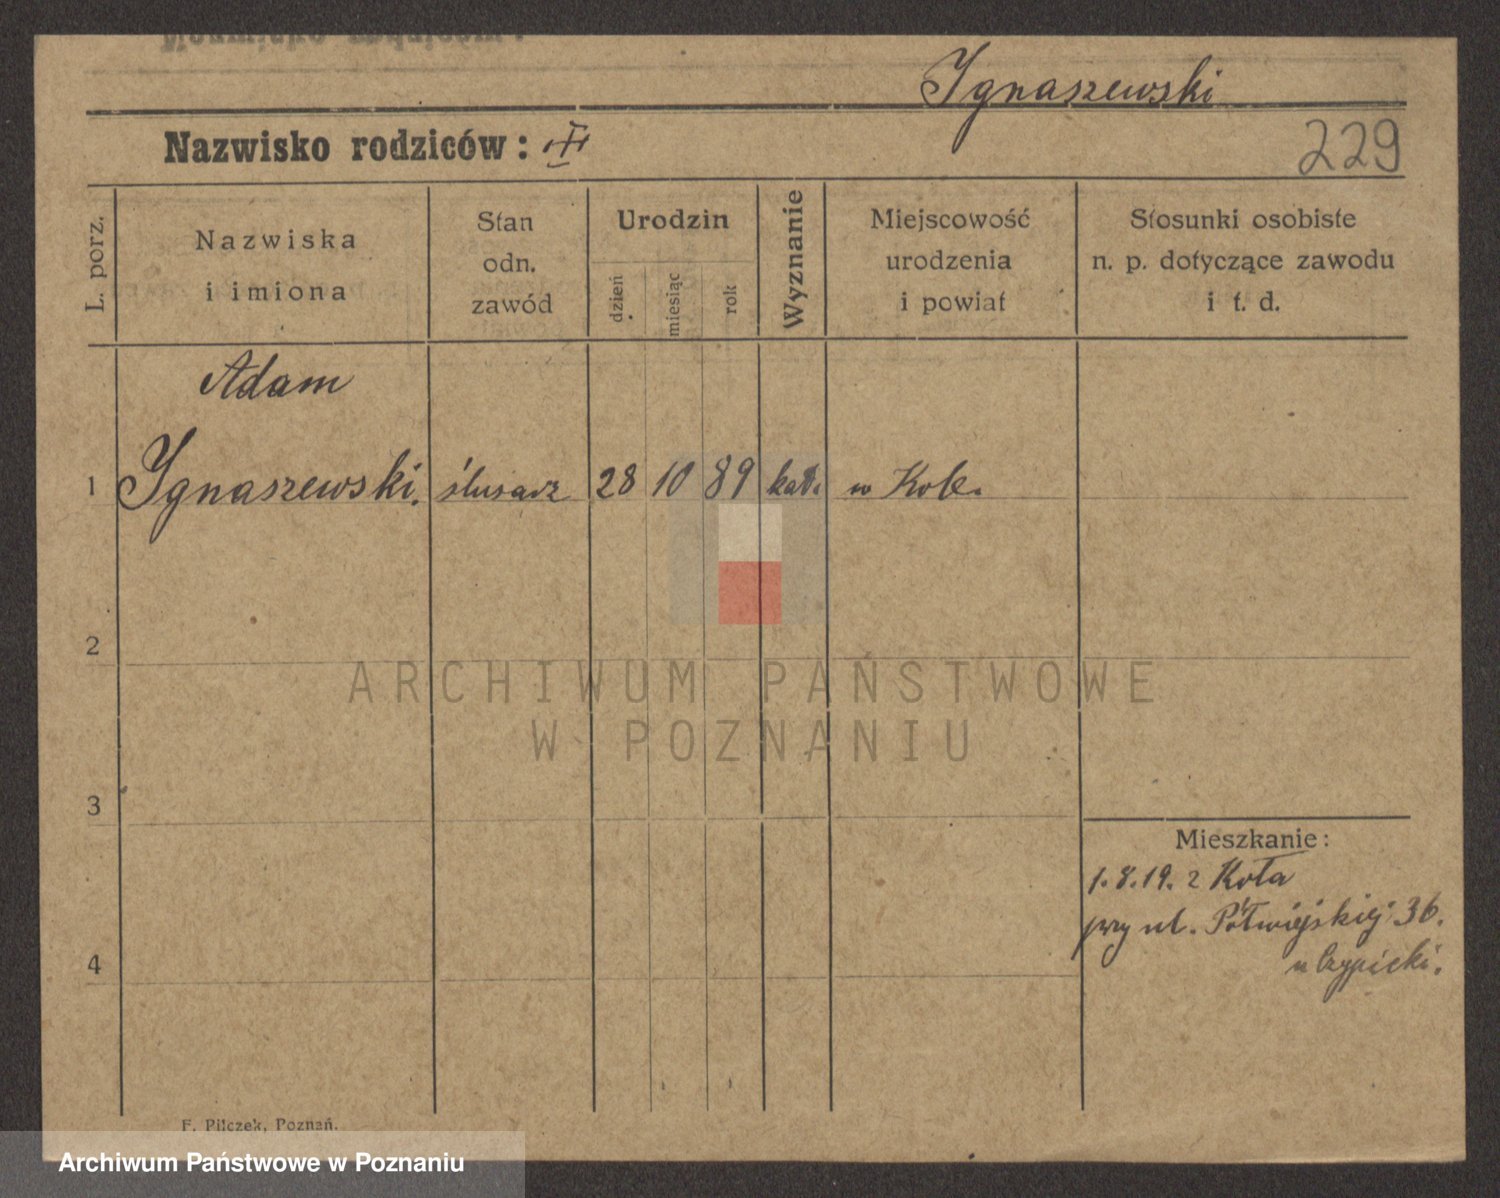 Ignaszewski
Nazwisko rodziców:
229
L. porz.
Nazwiska
i imiona
Stan
odn.
zawód
Urodzin
dzień
miesiąc
rok
Wyznanie
Miejscowość
urodzenia
i powiat
Stosunki osobiste
n. p. dotyczące zawodu
i t. d.
Adam
1 Ignaszewski. ślusarz 28 10 89 kat. w Kole.
2
3
4
Mieszkanie:
1.8.19. z Koła
przy ul. Półwiejskiej 36.
u Czypicki.
F. Pilczek, Poznań.
ARCHIWUM PAŃSTWOWE
W POZNANIU
Archiwum Państwowe w Poznaniu